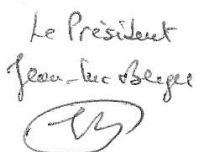 Le Président
Jean-Luc Berger